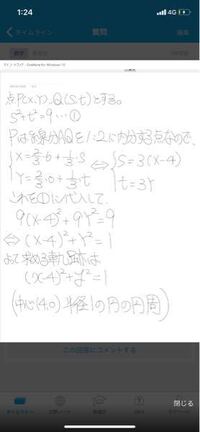 1:24
4G
タイムライン
質問
編集
点P(x,y)、Q(s,t)とする。
s²+t²=9…①
Pは線分AQを1:2に内分する点なので、
{x=2/3・6+1/3・s ⇔ {s=3(x-4)
{y=2/3・0+1/3t {t=3y
これを①に代入して、
9(x-4)²+9y²=9
⇔(x-4)²+y²=1
よって求める軌跡は
(x-4)²+y²=1
(中心(4,0)半径1の円の円周)
閉じる
この回答にコメントする
タイムライン
Q&A